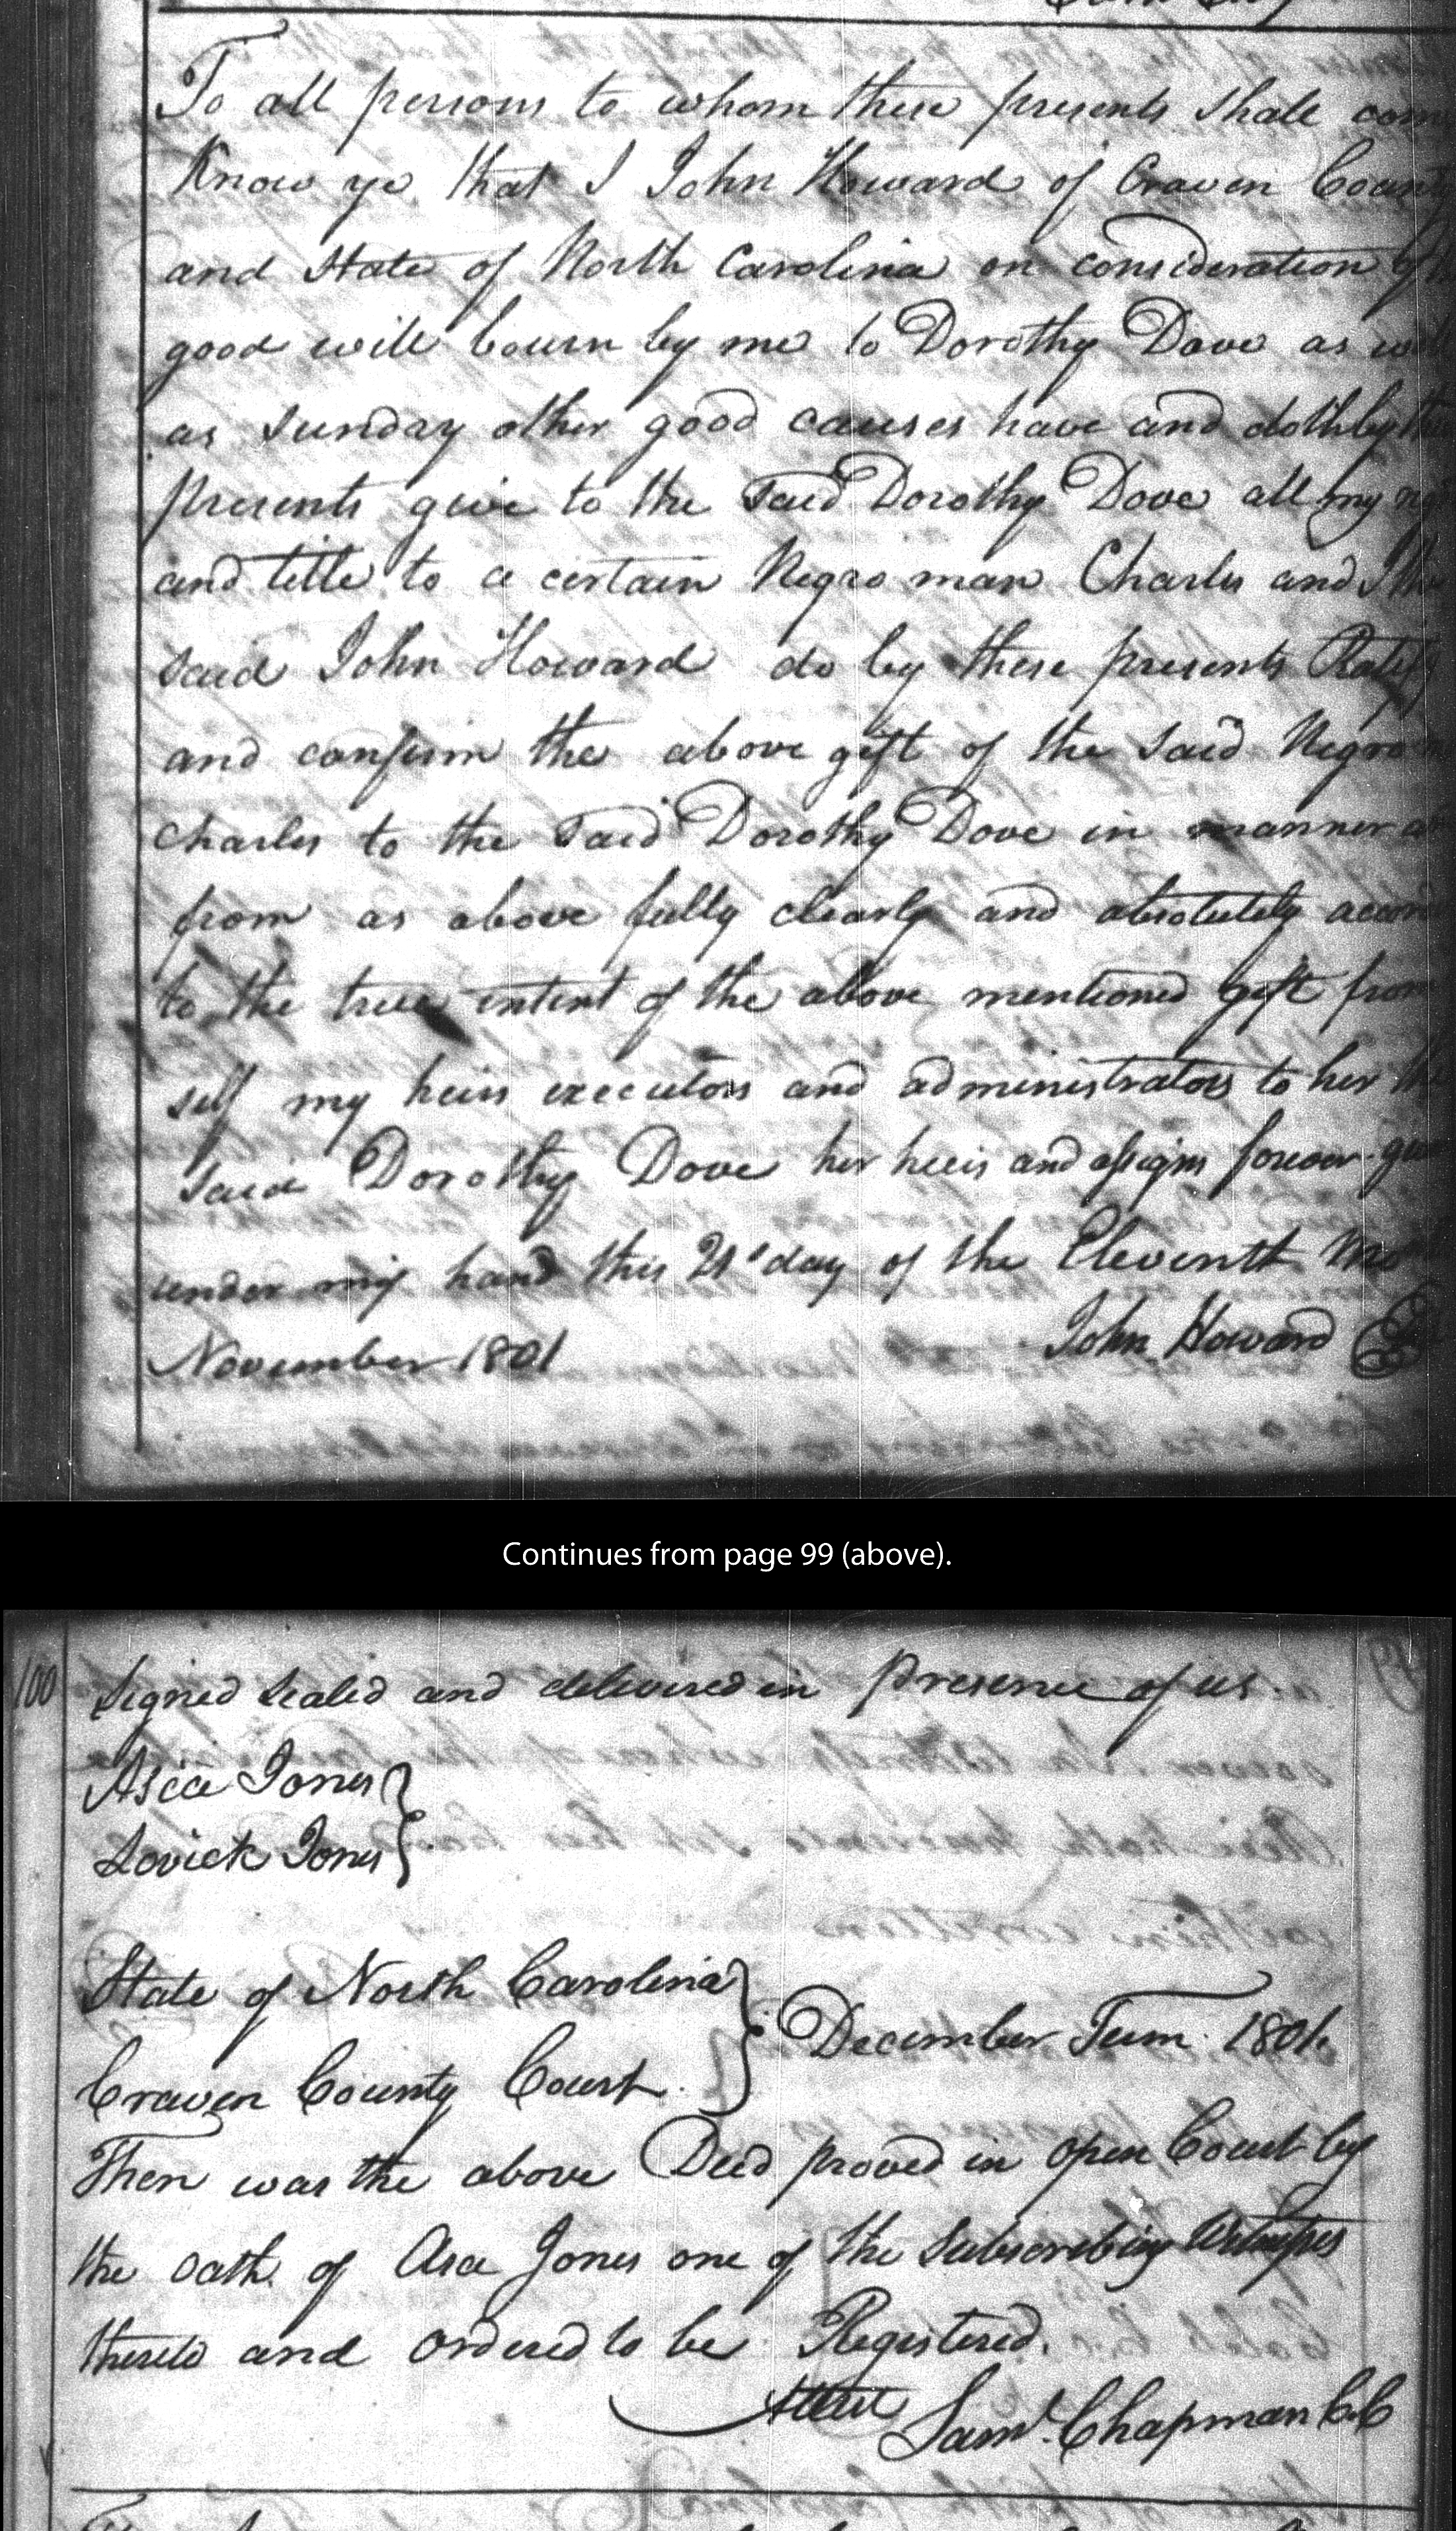 To all persons to whom these presents shall com
Know ye that I John Howard of Craven Count
and State of North Carolina on consideration of
good will bourn by me to Dorothy Dove as well
as sunday other good causes have and doth by
presents give to the said Dorothy Dove all my
and title to a certain Negro man Charles and I the
said John Howard do by these presents Ratify
and confirm the above gift of the said Negro
Charles to the said Dorothy Dove in manner a
from as above fully clearly and absolutely accor
to the true intent of the above mentioned gift from
self my heirs executors and administrators to her the
said Dorothy Dove her heirs and assigns forever
under my hand this 21st day of the Eleventh Mo
November 1801 John Howard
Continues from page 99 (above).
100 Signed sealed and delivered in presence of us.
Asa Jones
Lovick Jones
State of North Carolina
December Term 1801.
Craven County Court.
Then was the above Deed proved in open Court by
the oath of Asa Jones one of the subscribing Witnesses
thereto and ordered to be Registered.
Attest Saml. Chapman CC